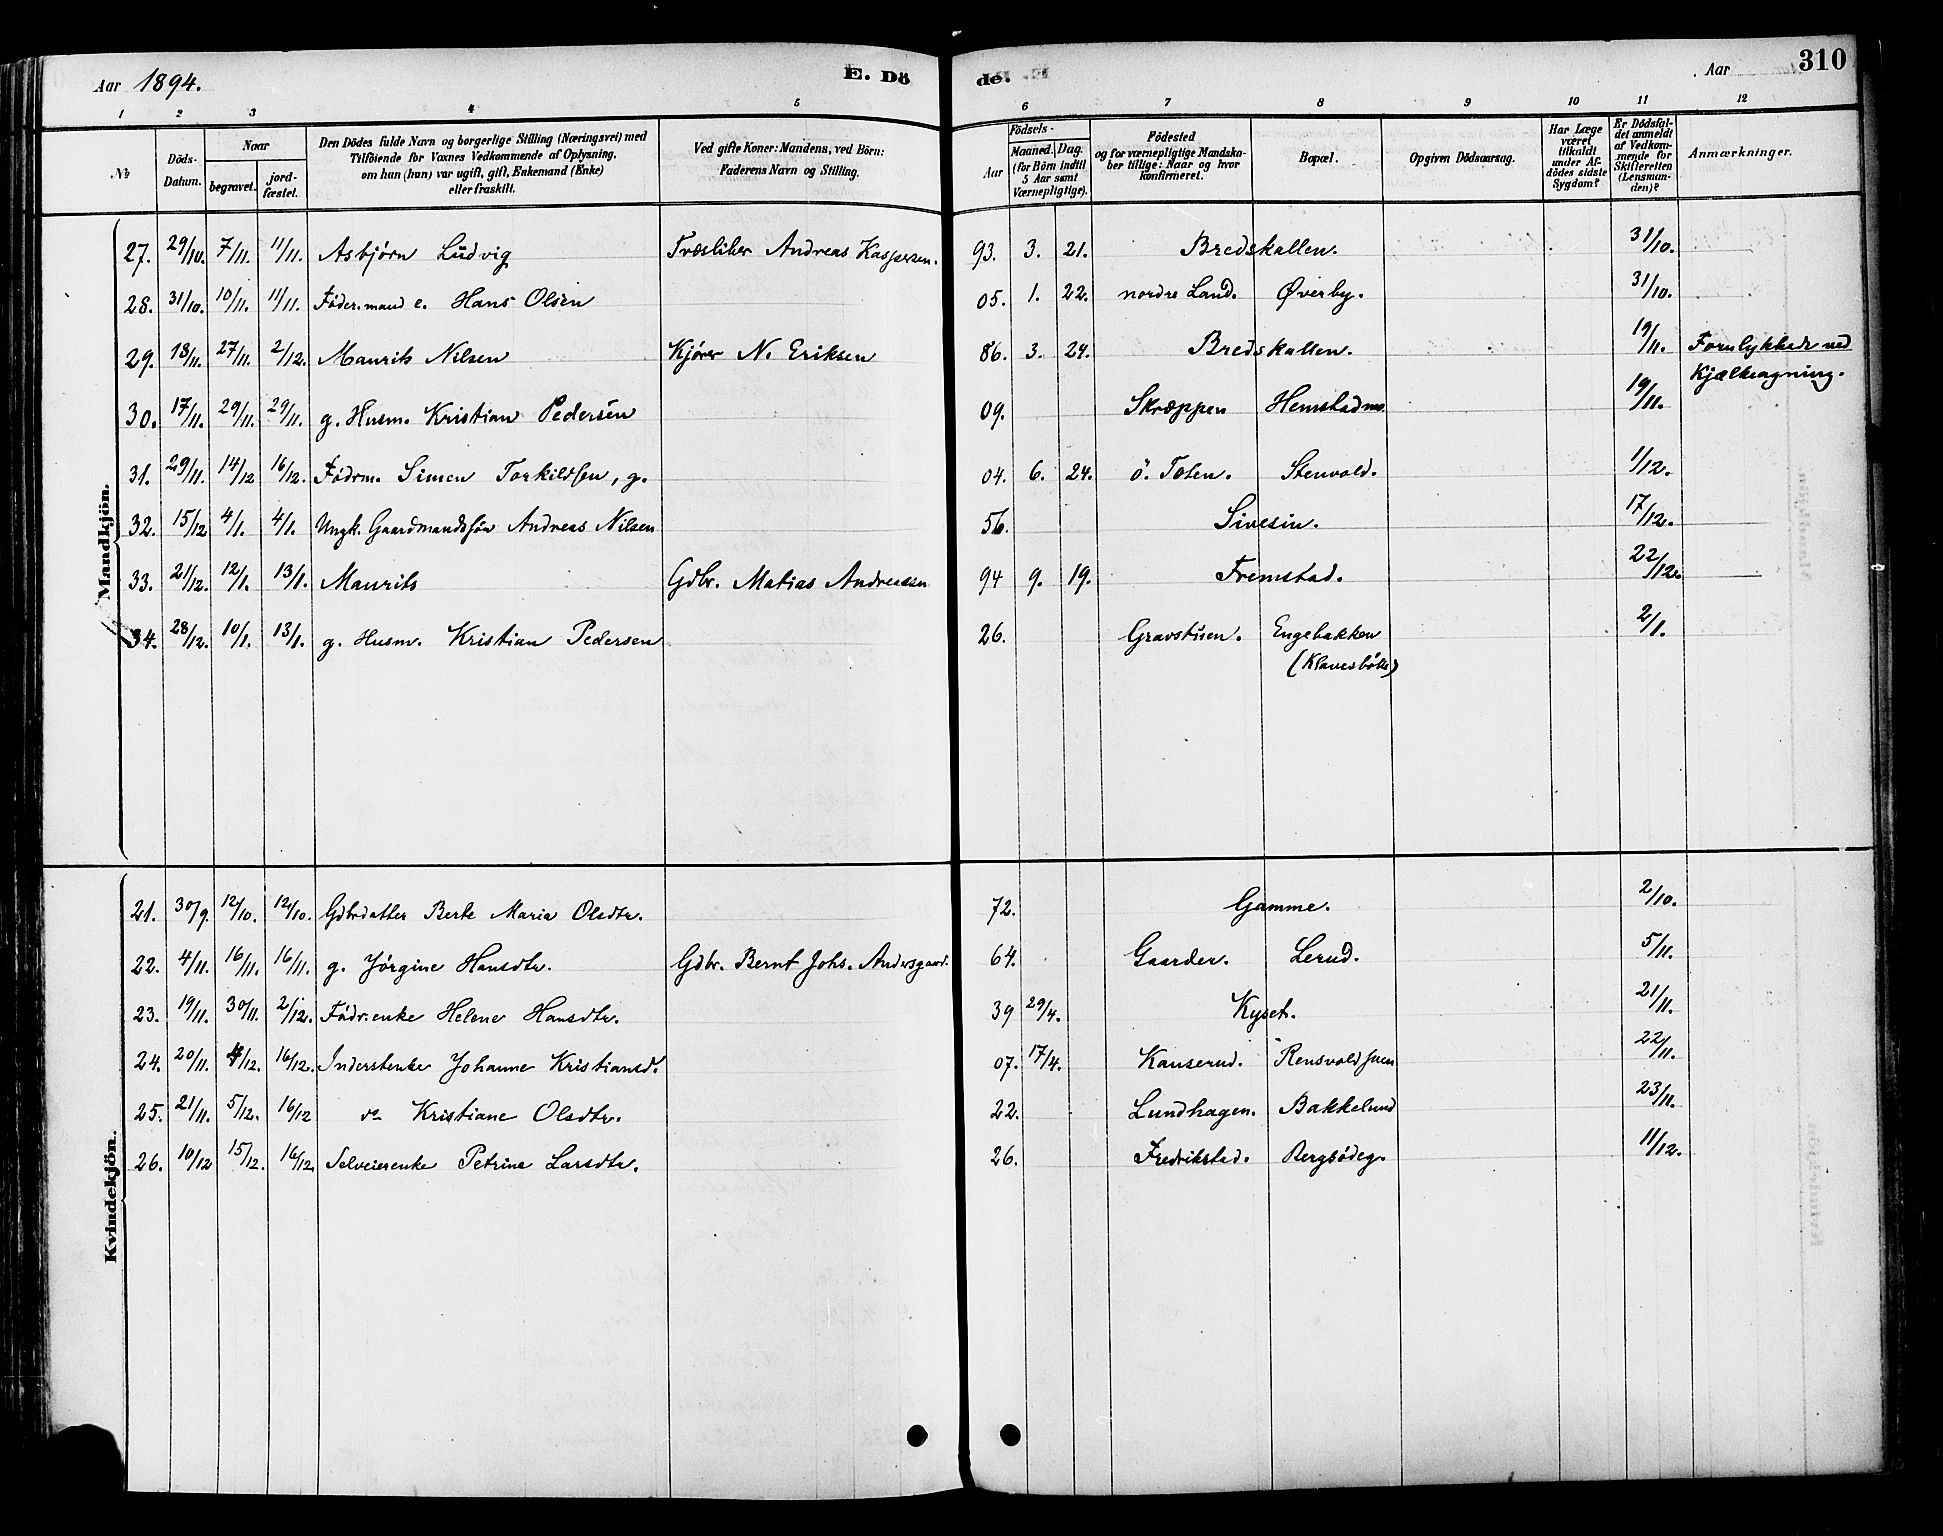 Aar 1894. E. Dö de. Aar 310
1 2 3 4 5 6 7 8 9 10 11 12
No
Döds-Datum.
Naar
begravet.
jord-fæstet.
Den Dödes fulde Navn og borgerlige Stilling (Næringsvei) med
Tilföiende for Voxnes Vedkommende af Oplysning,
om han (hun) var ugift, gift, Enkemand (Enke)
eller fraskilt.
Ved gifte Koner: Mandens, ved Börn:
Faderens Navn og Stilling.
Födsels-
Aar
Maaned. Dag.
(for Börn indtil
5 Aar samt
Værnepligtige).
Födested
og for værnepligtige Mandska-
ber tillige: Naar og hvor
konfirmeret.
Bopæl.
Opgiven Dödsaarsag.
Har Læge
været
tilkaldt
under Af-
dödes sidste
Sygdom?
Er Dödsfal-
det anmeldt
af Vedkom-
mende for
Skifteretten
(Lensman-
den)?
Anmærkninger.
Mandkjön.
27. 29/10. 7/11. 11/11. Asbjørn Ludvig Træsliber Andreas Kaspersen. 93. 3. 21. Bredskallen. 31/10.
28. 31/10. 10/11. 11/11. Föder.mand e. Hans Olsen 05. 1. 22. nordre Land. Øverby. 31/10.
29. 18/11. 27/11. 2/12. Maurits Nilsen Kjører N. Eriksen 86. 3. 24. Bredskallen. 19/11. Forulykkede ved
Kjælkeagning.
30. 17/11. 29/11. 29/11. g. Husm. Kristian Pedersen 09. Skræppen Hemstadmo. 19/11.
31. 29/11. 14/12 16/12. Födrm. Simen Torkildsen, g. 04. 6. 24. ö. Toten. Stenvold. 1/12.
32. 15/12 4/1. 4/1. Ungk. Gaardmandssøn Andreas Nilsen 56. Sivesin. 17/12.
33. 21/12. 12/1. 13/1. Maurits Gdbr. Matias Andreassen 94 9. 19. Fremstad. 22/12.
34. 28/12. 10/1. 13/1. g. Husm. Kristian Pedersen 26. Gravstuen. Engebakken 2/1.
(Klavesbölle)
Kvindekjön.
21. 30/9. 12/10. 12/10. Gdbrdatter Berte Maria Olsdtr. 72. Gamme. 2/10.
22. 4/11. 16/11. 16/11. g. Jörgine Hansdtr. Gdbr. Bernt Johs. Andersgaard. 64. Gaarder. Lerud. 5/11.
23. 19/11. 30/11. 2/12. Födr.enke Helene Hansdtr. 39 29/4. Kyset. 21/11.
24. 20/11. 4/12. 16/12. Inderstenke Johanne Kristiansd. 07. 17/4. Kanserud. Rensvoldsuen 22/11.
25. 21/11. 5/12. 16/12 do Kristiane Olsdtr. 22. Lundhagen. Bakkelund 23/11.
26. 10/12 15/12. 16/12 Selveierenke Petrine Larsdtr. 26. Fredrikstad. Bergsödeg. 11/12.